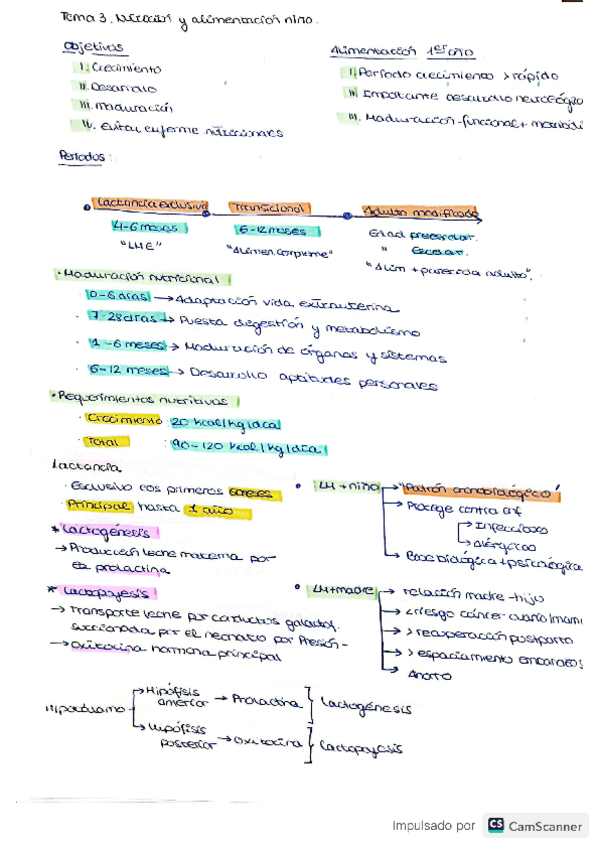 Tema 3. Nutrición y alimentación niño.
Objetivos
I. Crecimiento
II. Desarrollo
III. Maduración
IV. Evitar enferme. nutricionales
Alimentación 1er año
I. Período crecimiento > rápido
II. Importante desarrollo neurológico
III. Maduración funcional +
Períodos:
Lactancia exclusiva Transicional Adulto modificado
4-6 meses 6-12 meses Edad preescolar.
"LME" "Alimen. compleme" " Escolar.
"Alim + parecida adulto".
· Maduración nutricional
0-6 días → Adaptación vida extrauterina
· 7-28 días → Puesta digestión y metabolismo
· 1-6 meses → Maduración de órganos y sistemas
· 6-12 meses → Desarrollo aptitudes personales
· Requerimientos nutritivos
· Crecimiento: 20 kcal/kg/día
· Total : 90-120 kcal/kg/día
Lactancia
· Exclusivo los primeros 6 meses
· Principal hasta 1 año
* Lactogénesis
→ Producción leche materna por
la prolactina
* Lactopoyesis
→ Transporte leche por conductos galactof.
succionada por el neonato por Presión -
→ Oxitocina hormona principal
• LM + niño → "Patrón cronobiológico"
→ Protege contra enf
→ Infecciosas
→ Alérgicas
→ Base biológica + psicológica
• LM + madre → relación madre-hijo
→ < riesgo cáncer ovario/mama
→ > recuperación postparto
→ > espaciamiento embarazos
→ Ahorro
Hipotálamo → Hipófisis anterior → Prolactina } Lactogénesis
→ Hipófisis posterior → Oxitocina } Lactopoyesis
Impulsado por CS CamScanner